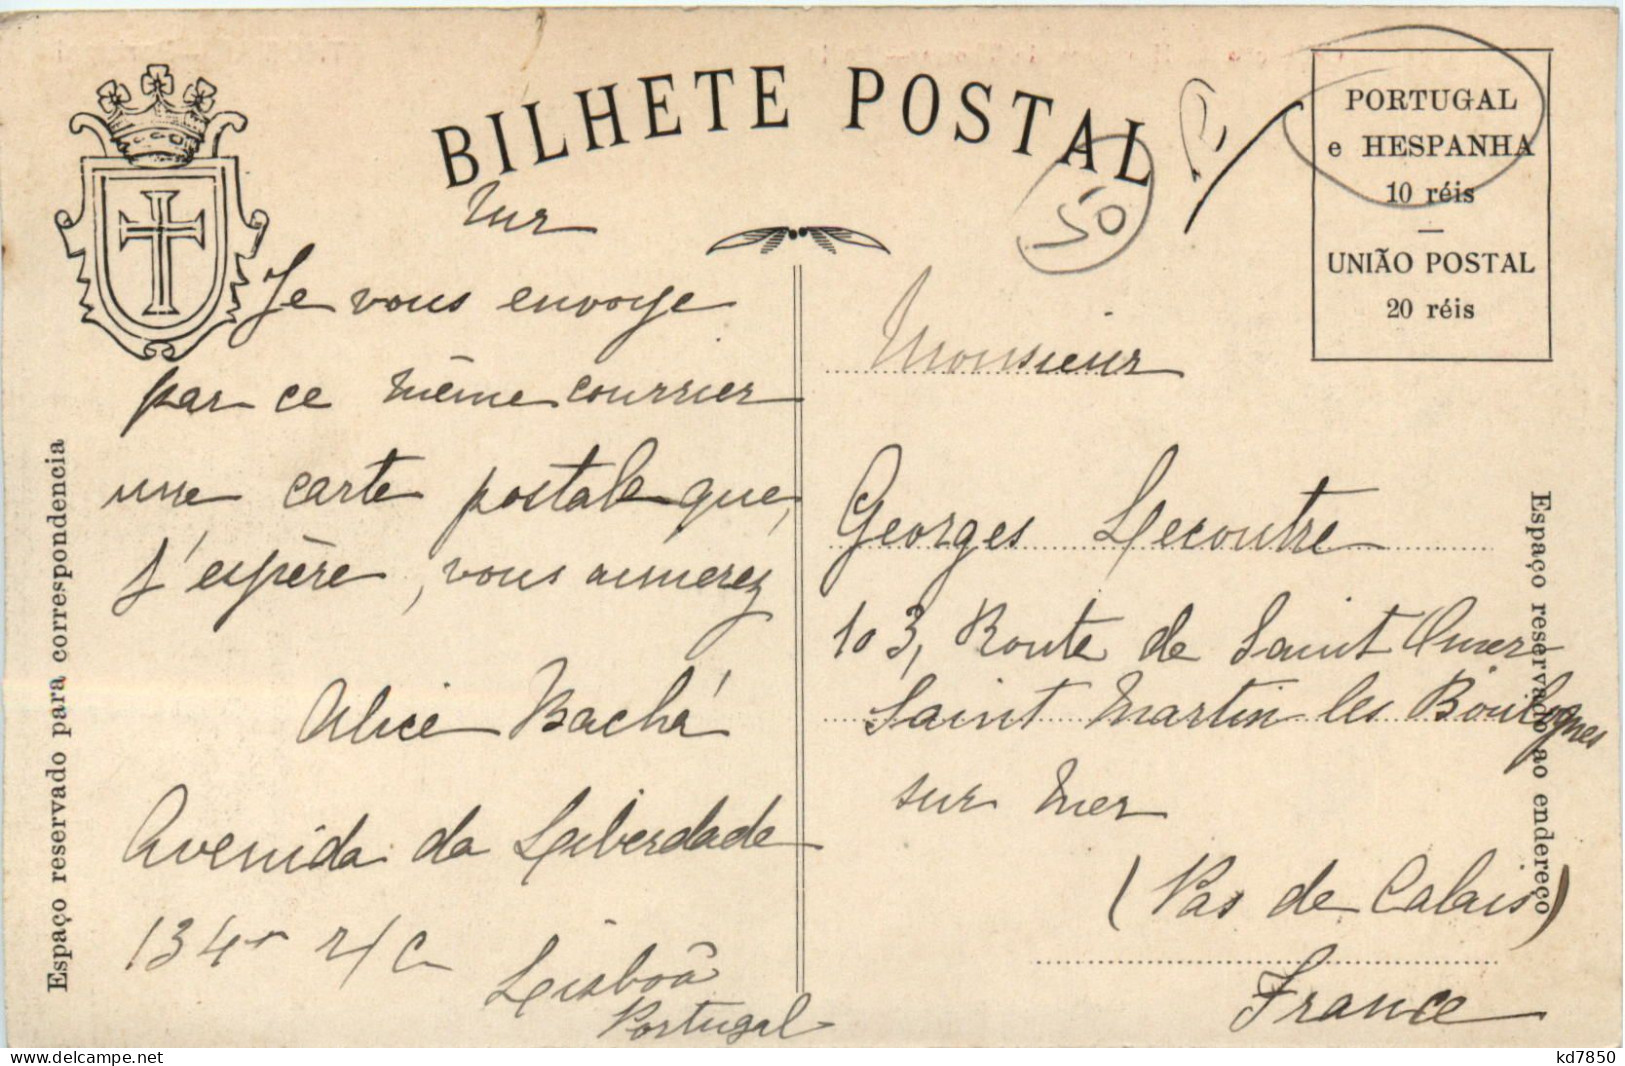 BILHETE POSTAL
50
PORTUGAL
e HESPANHA
10 réis
UNIÃO POSTAL
20 réis
Espaço reservado para correspondencia
Mr
Je vous envoye
par ce même courrier
une carte postale que,
j'espère, vous aimerez
Alice Bachá
Avenida da Liberdade
134 r/c
Lisboâ
Portugal
Monsieur
Georges Lecoutre
103, Route de Saint Omer
Saint Martin les Boulognes
sur Mer
(Pas de Calais)
France
Espaço reservado ao endereço
kd7850